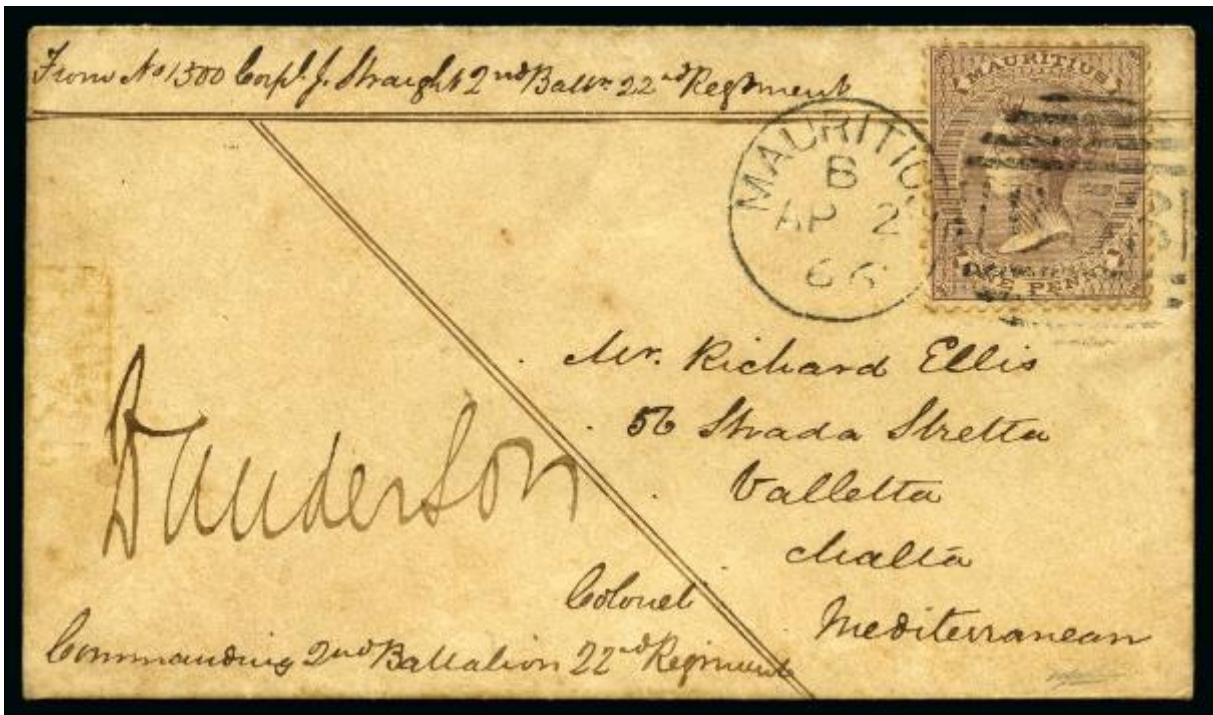 From No 1500 Corpl. J. Straight 2nd Battn. 22nd Regiment
MAURITIUS
ONE PENNY
MAURITIUS
B
AP 2
66
Mr. Richard Ellis
56 Strada Stretta
Valletta
Malta
Mediterranean
Colonel
Commanding 2nd Battalion 22nd Regiment